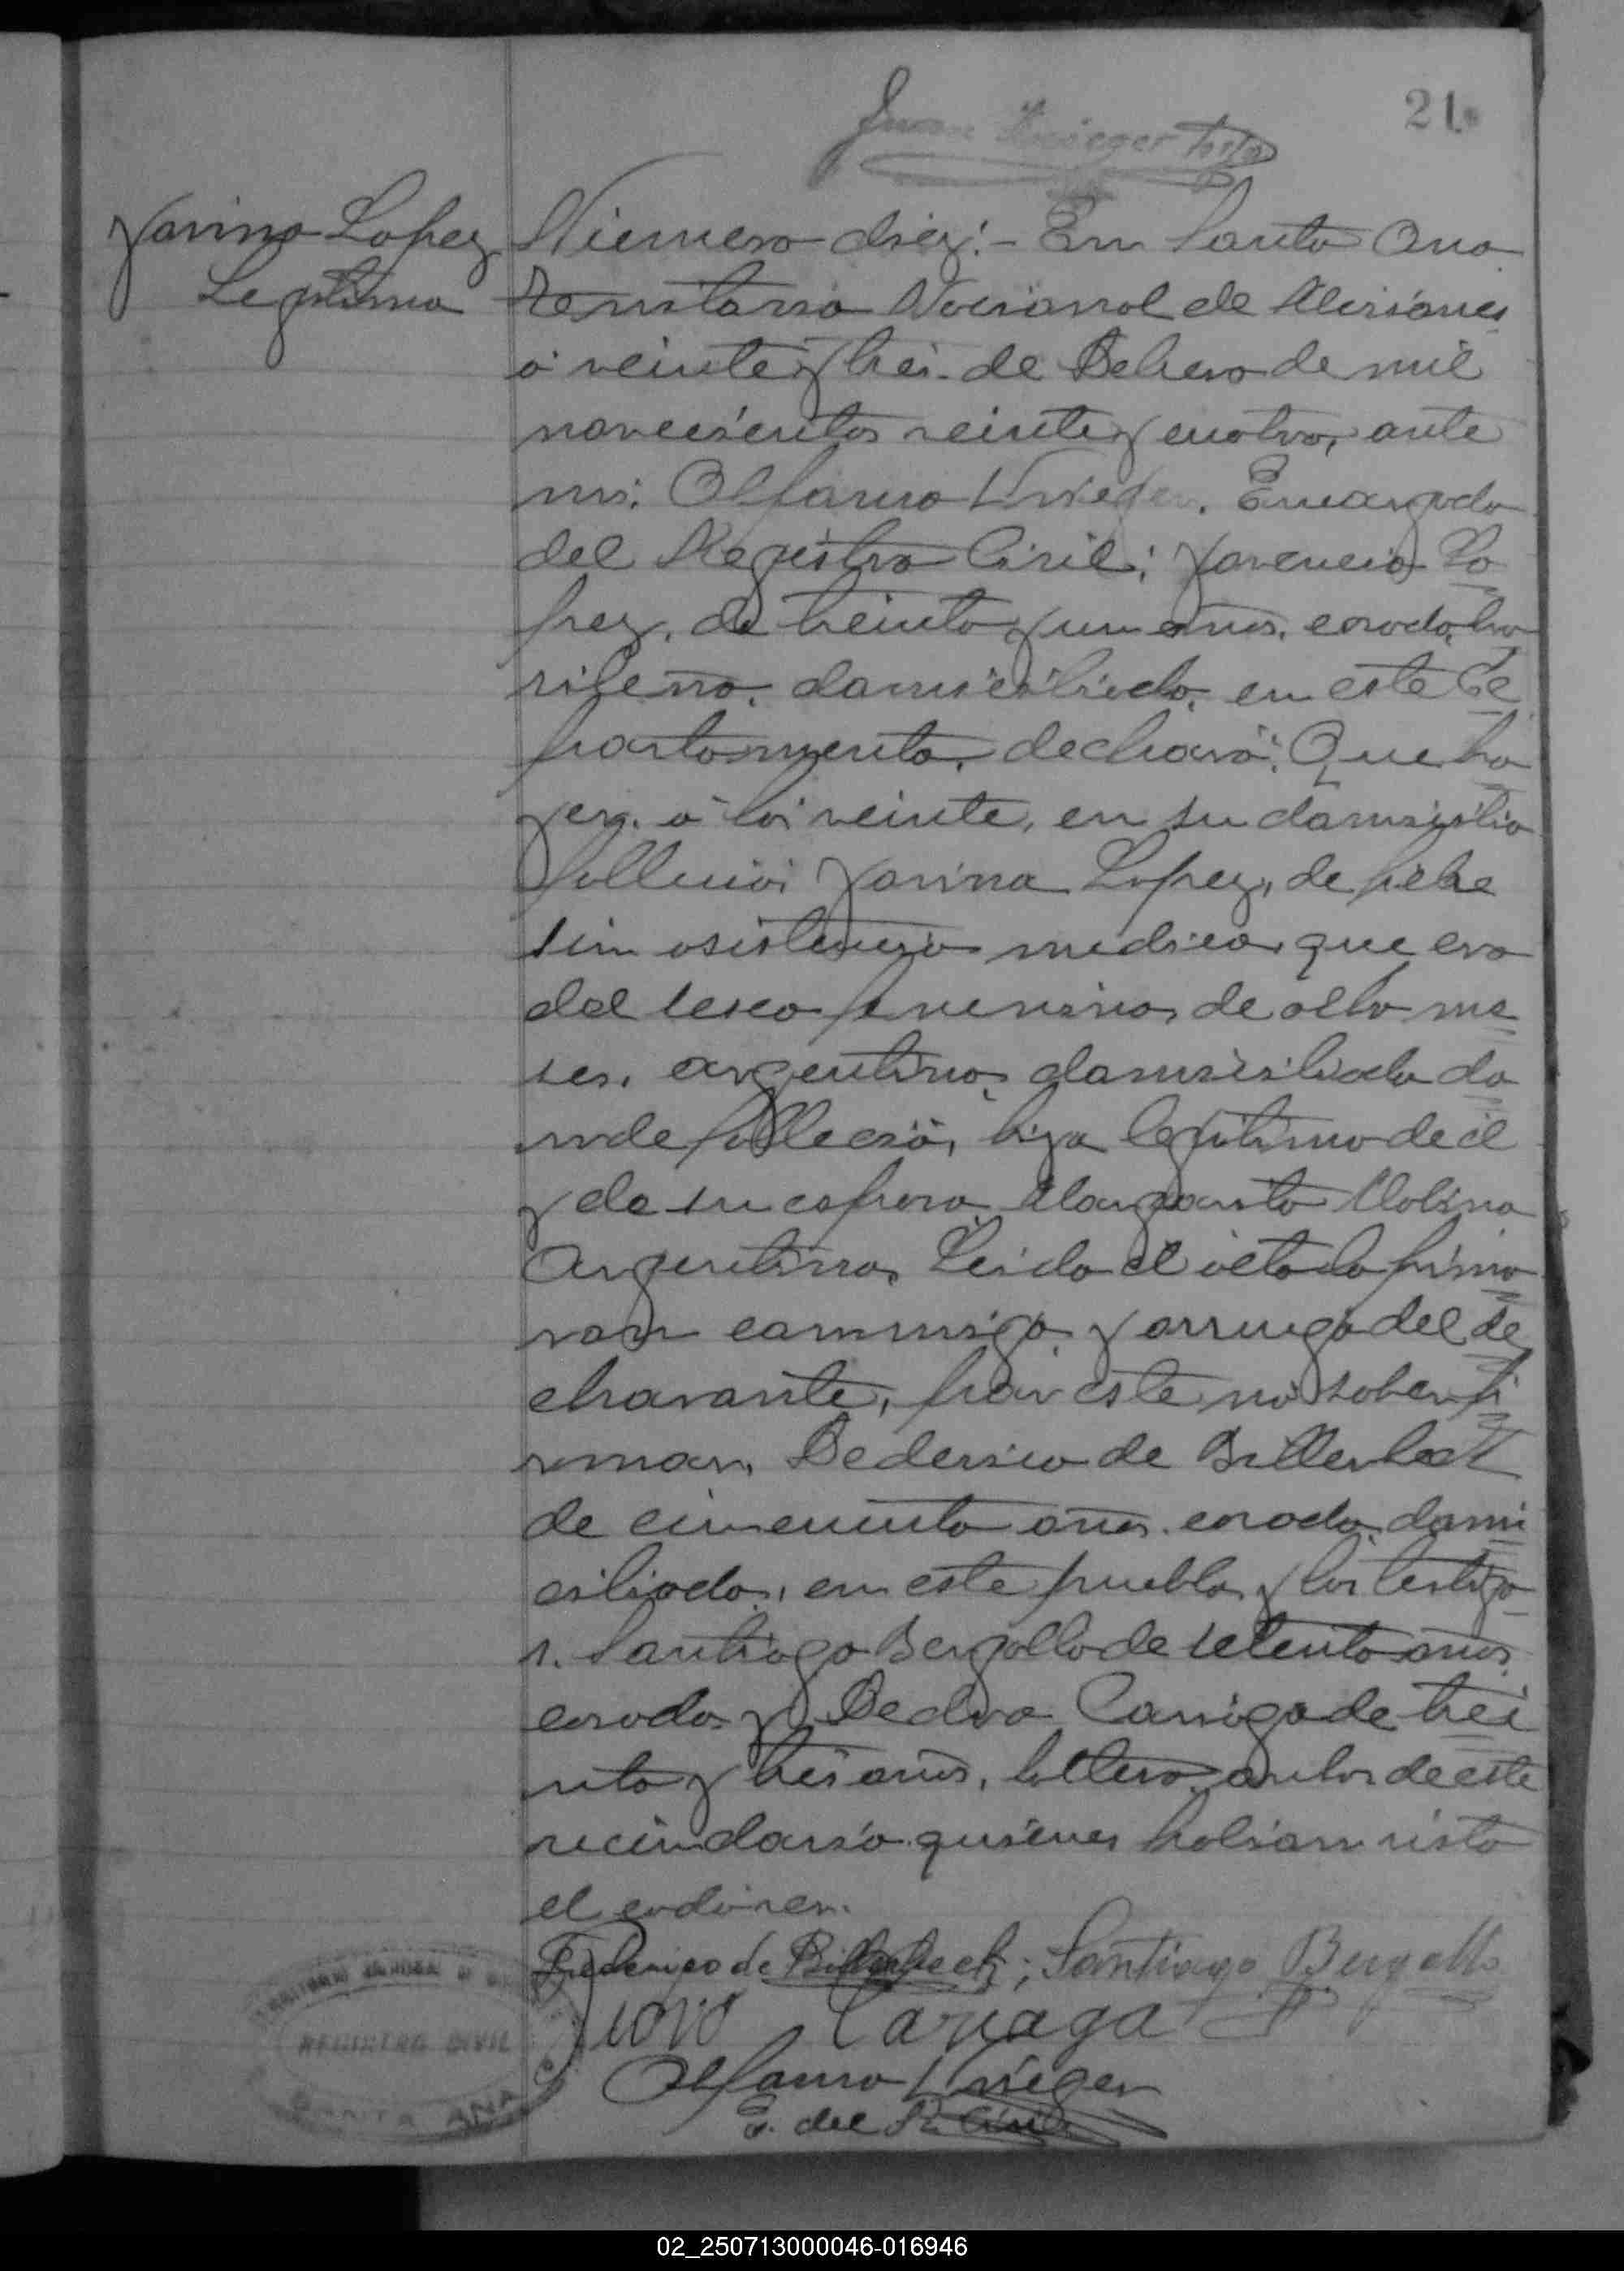 21
Juan Krieger hijo
Yovina Lopez
Legitima
Numero diez: - En Santa Ana
Territorio Nacional de Misiones
á veinte y tres de Febrero de mil
novecientos veinte y cuatro, ante
mi: Alfonso Krieger, Encargado
del Registro Civil; Juvencio Lo
pez, de treinta y un años, casado, bra
sileño, domiciliado en este De
partamento, declaró: Que ha
yer, á las veinte, en su domicilio
falleció Yovina Lopez, de fiebre
sin asistencia medica, que era
del sexo femenino, de ocho me
ses, argentina, domiciliada do
nde falleció, hija legitima de él
y de su esposa Margarita Molina
Argentina. Leida el acta la firma
ron conmigo, y a ruego del de
clarante, por este no saber fi
rmar, Federico de Billerbeck
de cincuenta años, casado, domi
ciliado, en este pueblo, y los testigo
s. Santiago Bergallo de setenta años
casado, y Pedro Cariaga de trei
nta y tres años, soltero, ambos de este
vecindario quienes habian visto
el cadáver.
Federico de Billerbeck; Santiago Bergallo
Cariaga
Alfonso Krieger
E. del R. Civil
REGISTRO CIVIL
SANTA ANA
02_250713000046-016946